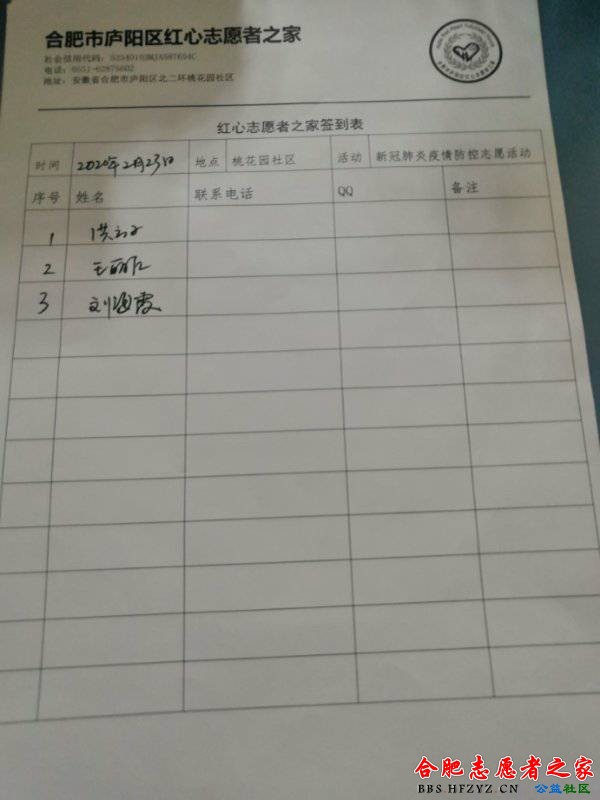 合肥市庐阳区红心志愿者之家
社会信用代码：
电话：0551-62875602
地址：安徽省合肥市庐阳区北二环桃花园社区
红心志愿者之家签到表
时间 2020年2月23日 地点 桃花园社区 活动 新冠肺炎疫情防控志愿活动
序号 姓名 联系电话 QQ 备注
1 洪
2 王丽
3 刘海霞
合肥志愿者之家
BBS.HFZYZ.CN 公益社区